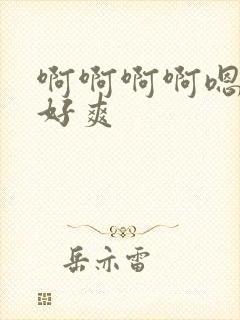 啊啊啊啊嗯
好爽
岳亦雷